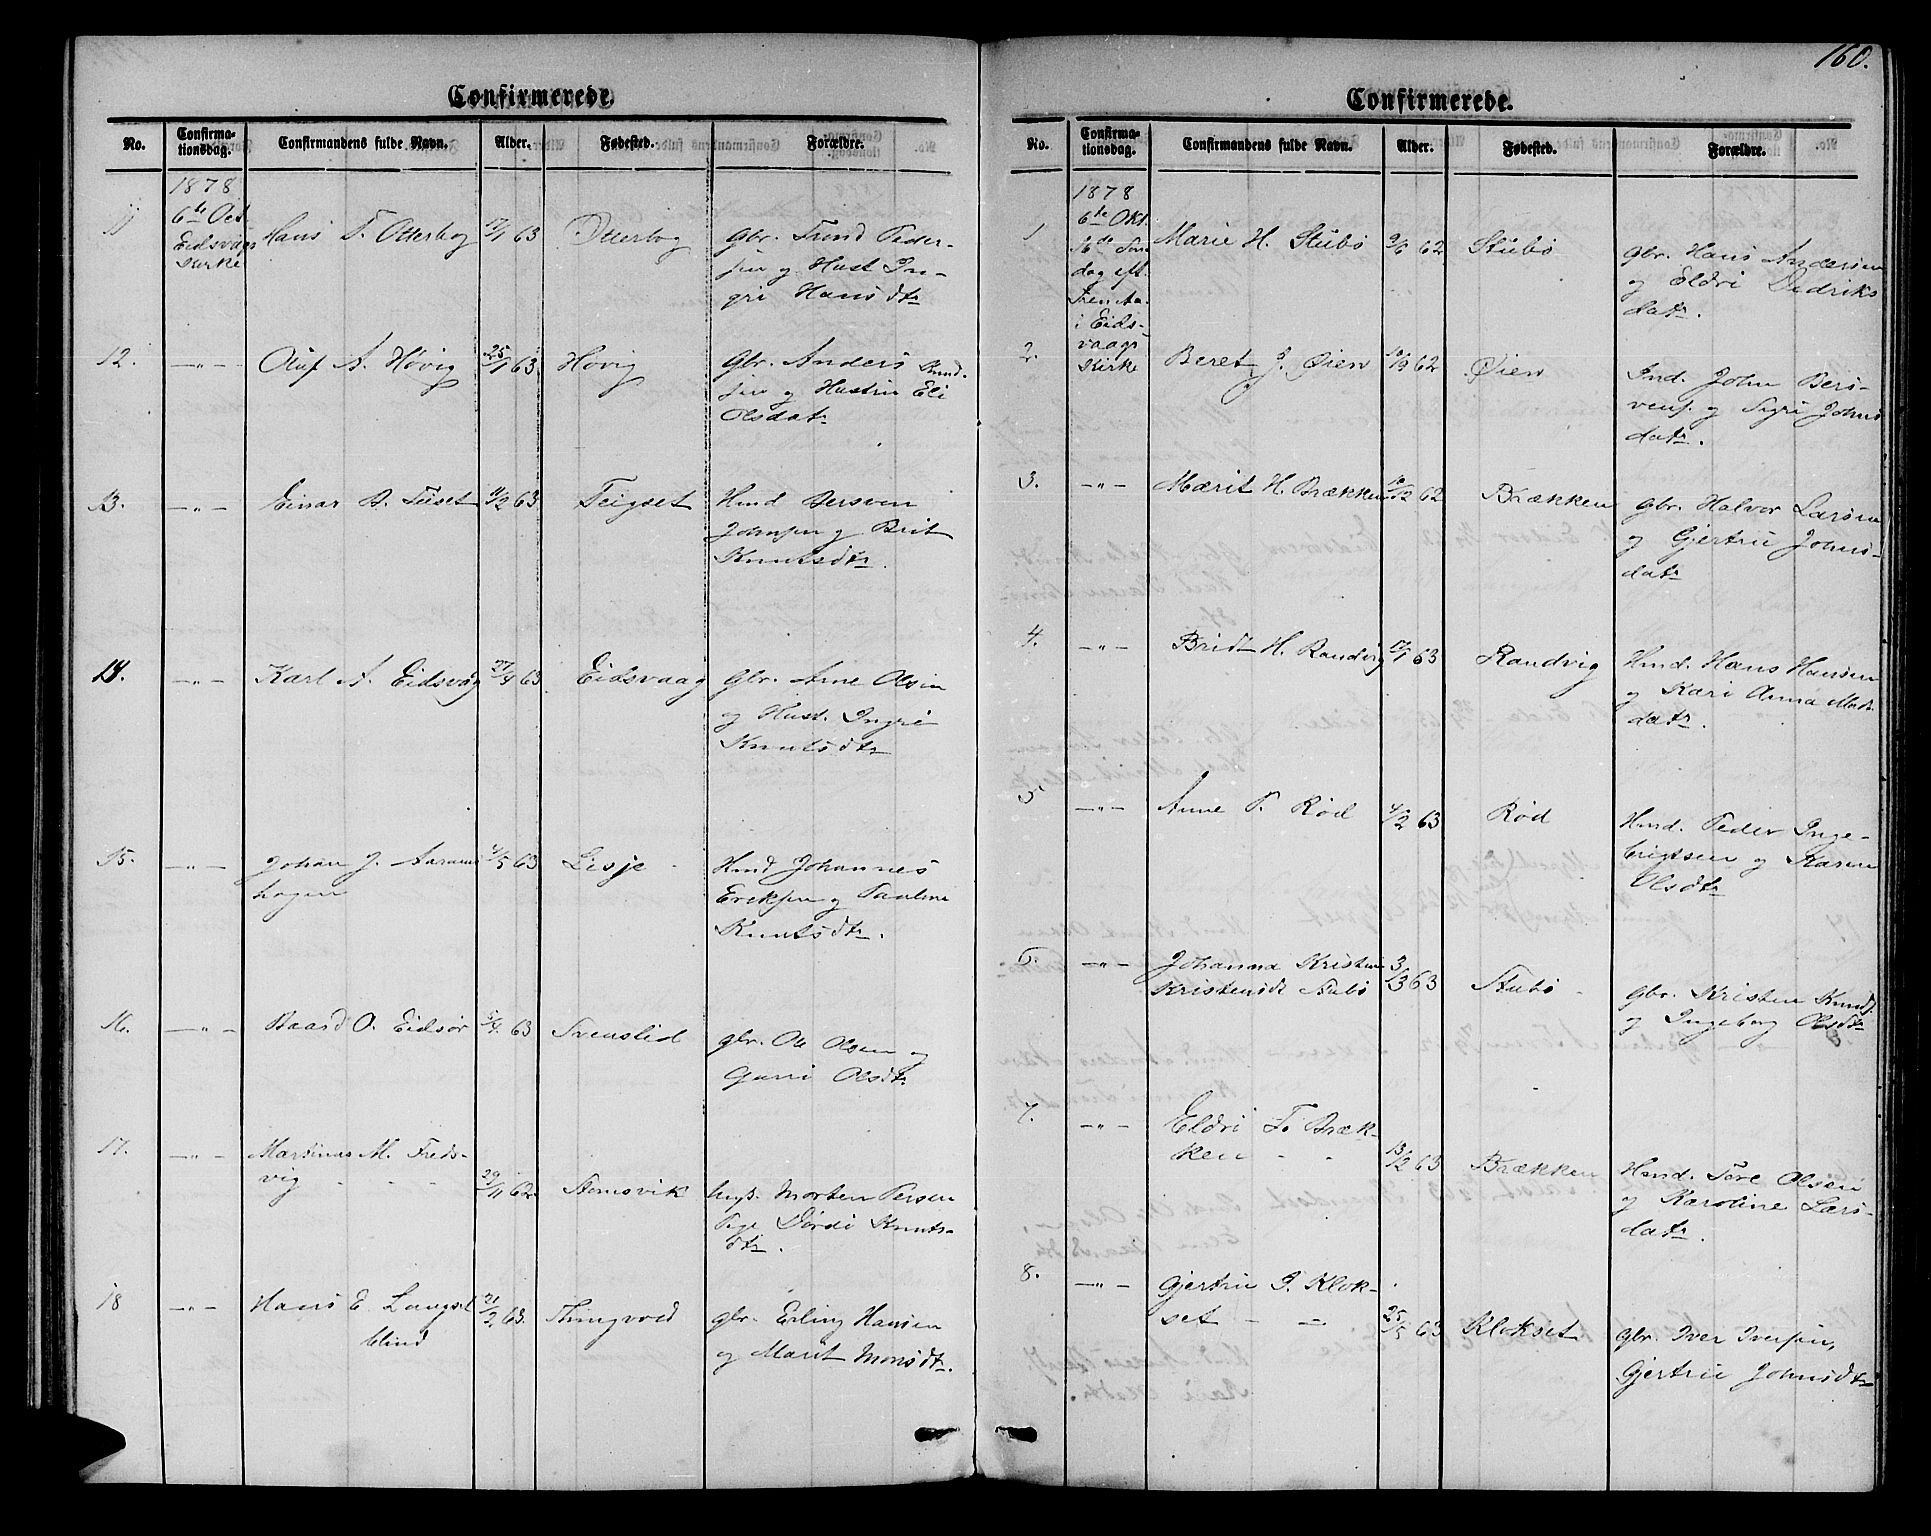 160.
Confirmerede.
No. Confirma-tionsdag. Confirmandens fulde Navn. Alder. Fødested. Forældre.
1878
6te Oct
Eidsvågs
Kirke
11 Hans T. Otterbog 63 Otterbog Gbr. Trund Peder-
sen og Hust In-
gri Hansdtr
12. —"— Oluf A. Høvig 25/1 63 Høvig Gbr. Anders Knud-
sen og Hustru Eli
Olsdatr
13. —"— Einar B. Teiset 11/2 63 Teigset Hmd Bersven
Johnsen og Brit
Knutsdtr.
14. —"— Karl A. Eidsvåg 27/4 63 Eidsvaag Gbr. Arne Olsen
og Hust. Ingri
Knutsdtr
15. —"— Johan J. Aarams
hagen 63 Lisje Hmd Johannes
Eriksen og Pauline
Knutsdtr.
16. —"— Baard O. Eidsør 5/4 63 Svenslid gbr. Ole Olsen og
Guri Olsdtr
17. —"— Martinus M. Freds-
vig - - - 29/11 62 Stomsvik Ungk. Morten Persen
Pige Dordi Knuts-
dtr.
18 —"— Hans E. Langset 21/2 63. Thingvold gbr. Erling Hansen
blind og Marit Monsdtr.
Confirmerede.
No. Confirma-tionsdag. Confirmandens fulde Navn. Alder. Fødested. Forældre.
1878
6te Okt.
16de Søn-
dag eft.
i Eids-
vaags
Kirke
1 Marie H. Stubø 9/6 62 Stubø Gbr. Hans Andersen
og Eldri Didriks
datr.
2. Beret J. Øien 10/9 62 Øien Ind. John Bers-
vens. og Sigri Johns
datr.
3. —"— Marit H. Brækken 16/12 62 Brækken Gbr. Halvor Larsen
og Gjertru Johns-
datr
4. —"— Bridt H. Randvig 17/1 63 Randvig Hmd. Hans Hansen
og Kari Anna Mads
datr.
5. —"— Anne P. Rød 4/2 63 Rød Hmd. Peder Inge-
brigtsen og Karen
Olsdtr
6. —"— Johanna Kristine
Kristensdt Stubø 3/3 63 Stubø - Gbr. Kristen Knuds.
og Ingeborg Olsdtr
7. —"— Eldri T. Bræk-
ken - - 13/2 63 Brækken Hmd. Tore Olsen
og Karoline Lars-
datr.
8. —"— Gjertru I. Klok-
set - — 25/5 63 Klokset gbr. Iver Iversen,
Gjertru Johnsdtr